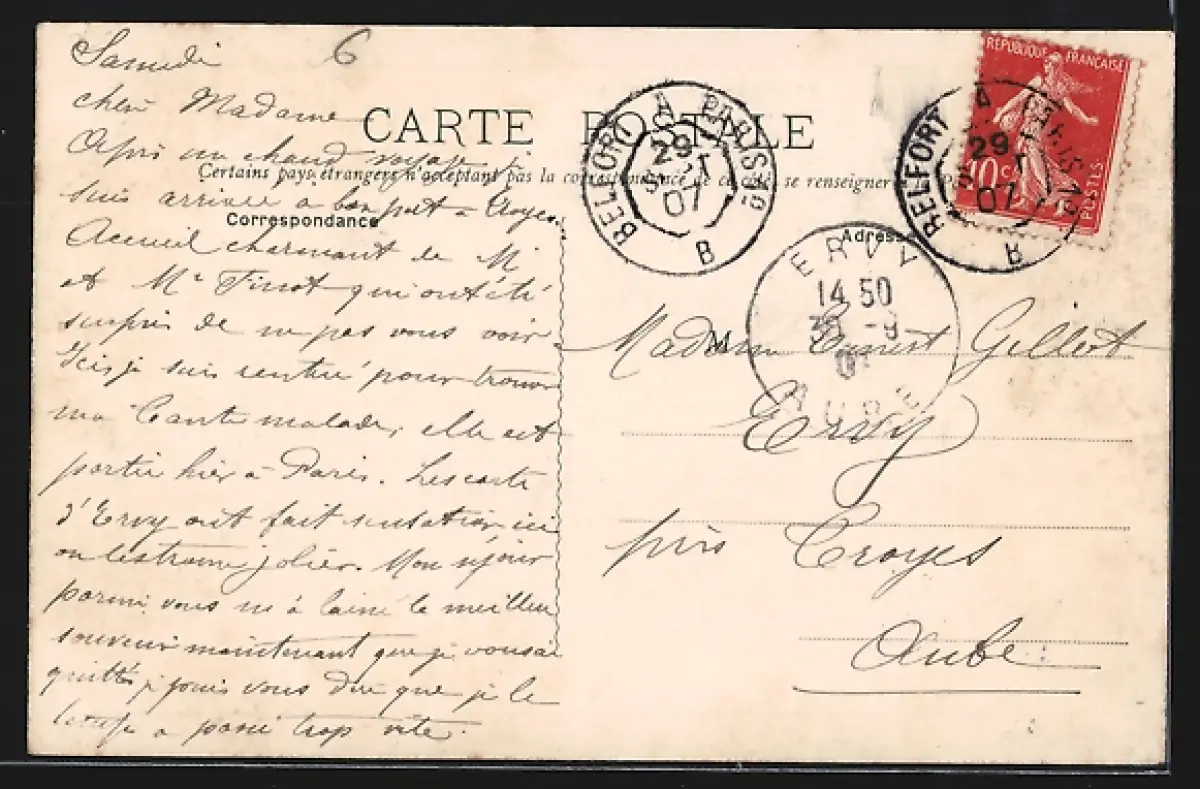 Samedi 6
chère Madame
CARTE POSTALE
Après un chaud voyage je
Certains pays étrangers n'acceptent pas la correspondance de ce côté, se renseigner
suis arrivée à bon port à Troyes,
Correspondance
Accueil charmant de M
et Me Finot qui ont été
surpris de ne pas vous voir
Ici je suis rentré pour trouver
ma Tante malade, elle est
partie hier à Paris. Les carte
d'Ervy ont fait sensation ici
on les trouve jolies. Mon séjour
parmi vous m'a laissé le meilleur
souvenir maintenant que je vous ai
quittés je puis vous dire que je le
temps a passé trop vite.
BELFORT A PARIS 1o
29 SEPT
07
B
RÉPUBLIQUE FRANÇAISE
10 c
POSTES
BELFORT A PARIS 1o
29
07
Adresse
ERVY
14 50
30 -9
0
AUBE
M
Madame Ernest Gillot
Ervy
près Troyes
Aube